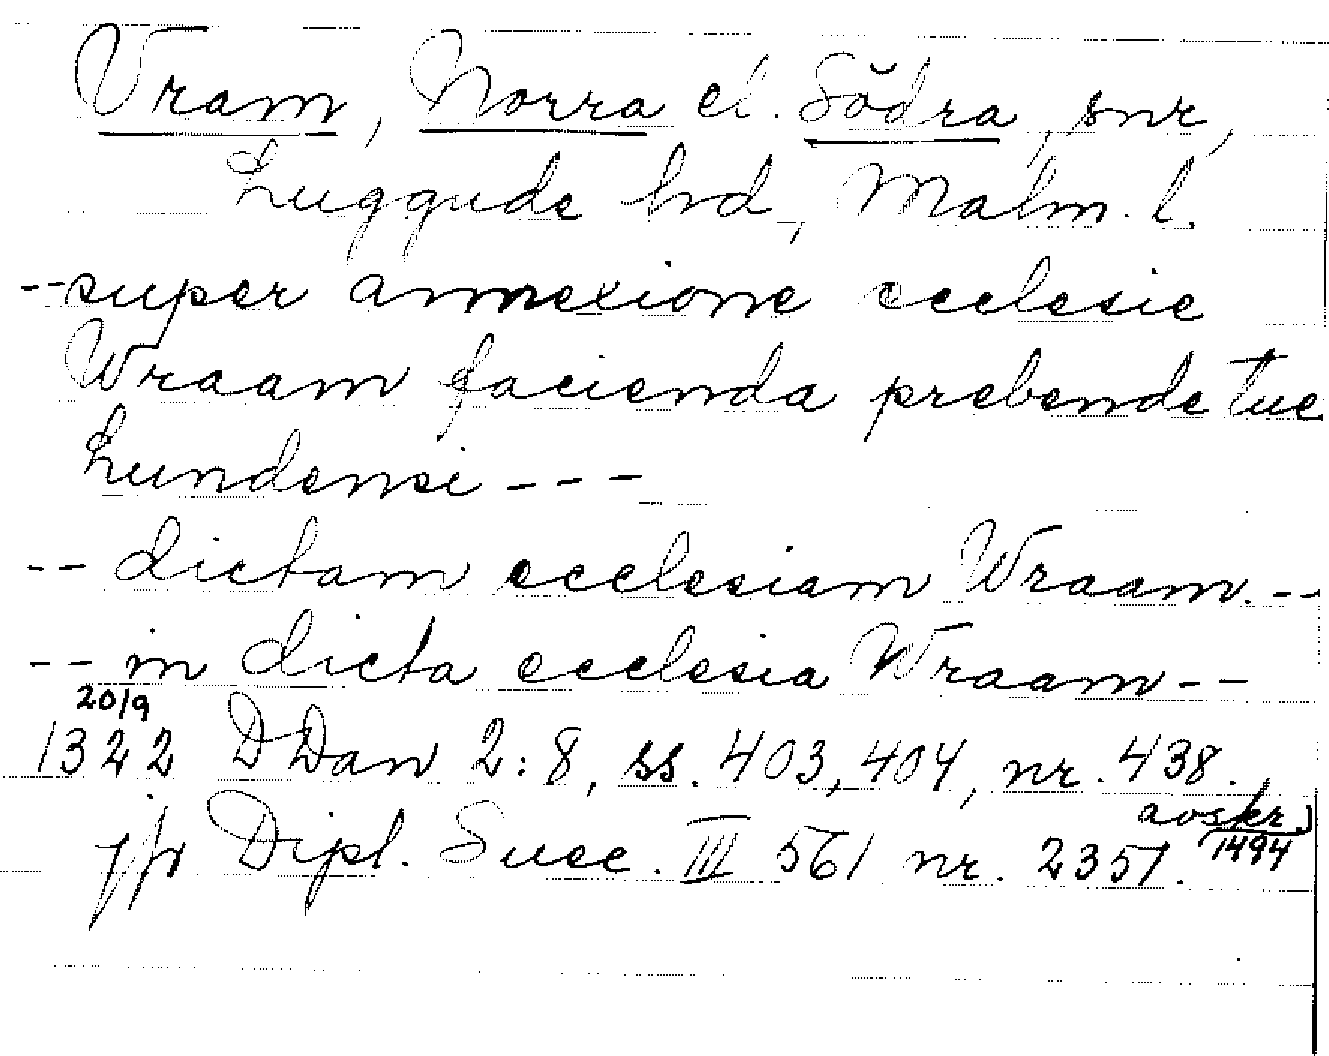 Vram, Norra el. Södra, snr,
Luggude hd, Malm. l.
--super annexione ecclesie
Wraam facienda prebende tue
Lundensi ---
-- dictam ecclesiam Wraam. --
-- in dicta ecclesia Wraam --
20/9
1322 DDan 2:8, ss. 403, 404, nr. 438.,
avskr 1494
jfr Dipl. Suec. III 561 nr. 2351.